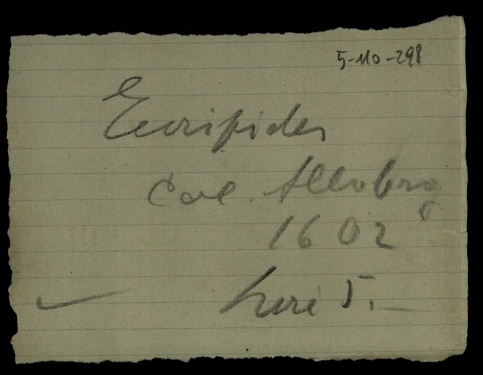 5-110-298
Euripides
Col. Allobrog
1602
Lire 5.—